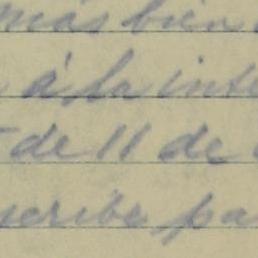 más bien
á la inte
de 11 de
scribe pa